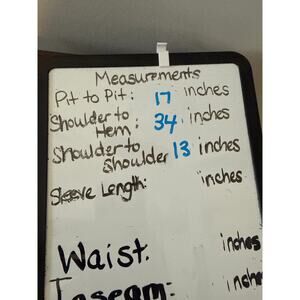 Measurements
Pit to Pit: 17 inches
Shoulder to
Hem: 34 inches
Shoulder to
Shoulder 13 inches
Sleeve Length: inches
Waist: inches
Inseam: inches